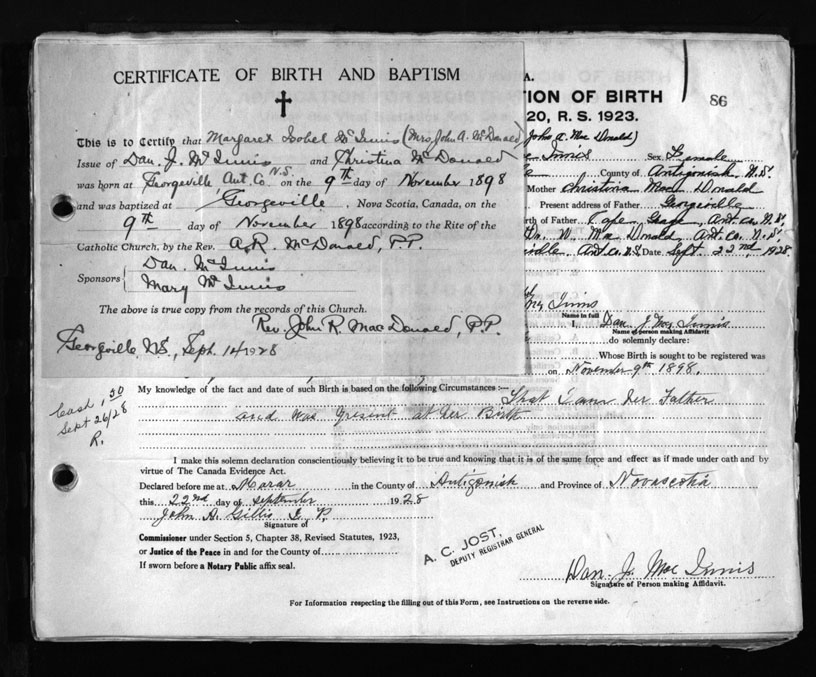 CERTIFICATE OF BIRTH AND BAPTISM
This is to Certify that Margaret Isobel McInnis (Mrs John A. McDonald)
Issue of Dan. J. McInnis and Christina McDonald
was born at Georgeville, Ant. Co N.S. on the 9th day of November 1898
and was baptized at Georgeville, Nova Scotia, Canada, on the
9th day of November 1898 according to the Rite of the
Catholic Church, by the Rev. A. R. McDonald, P.P.
Sponsors { Dan. McInnis
Mary McInnis
The above is true copy from the records of this Church.
Rev. John R. MacDonald, P.P.
Georgeville, N.S., Sept. 14 1928
A.
TION OF BIRTH
20, R. S. 1923.
86
John A. Mac Donald)
Innis Sex Female
County of Antigonish N.S.
Mother Christina Mac Donald
Present address of Father Georgeville
rth of Father Cape George, Ant. Co. N.S.
W. Mac Donald Ant. Co. N.S.
Ant. Co. N.S. Date Sept 22nd, 1928
Mc Innis
Name in full
I, Dan J. Mac Innis
Name of person making Affidavit
do solemnly declare:
Whose Birth is sought to be registered was
on November 9th 1898.
Cash 1.50
Sept 26/28
R.
My knowledge of the fact and date of such Birth is based on the following Circumstances:— That I am her Father
and was present at her Birth
I make this solemn declaration conscientiously believing it to be true and knowing that it is of the same force and effect as if made under oath and by
virtue of The Canada Evidence Act.
Declared before me at in the County of Antigonish and Province of Novascotia
this 22nd day of September 1928
John A. Gillis J. P.
Signature of
Commissioner under Section 5, Chapter 38, Revised Statutes, 1923,
or Justice of the Peace in and for the County of
If sworn before a Notary Public affix seal.
A. C. JOST,
DEPUTY REGISTRAR GENERAL
Dan. J. Mac Innis
Signature of Person making Affidavit.
For Information respecting the filling out of this Form, see Instructions on the reverse side.